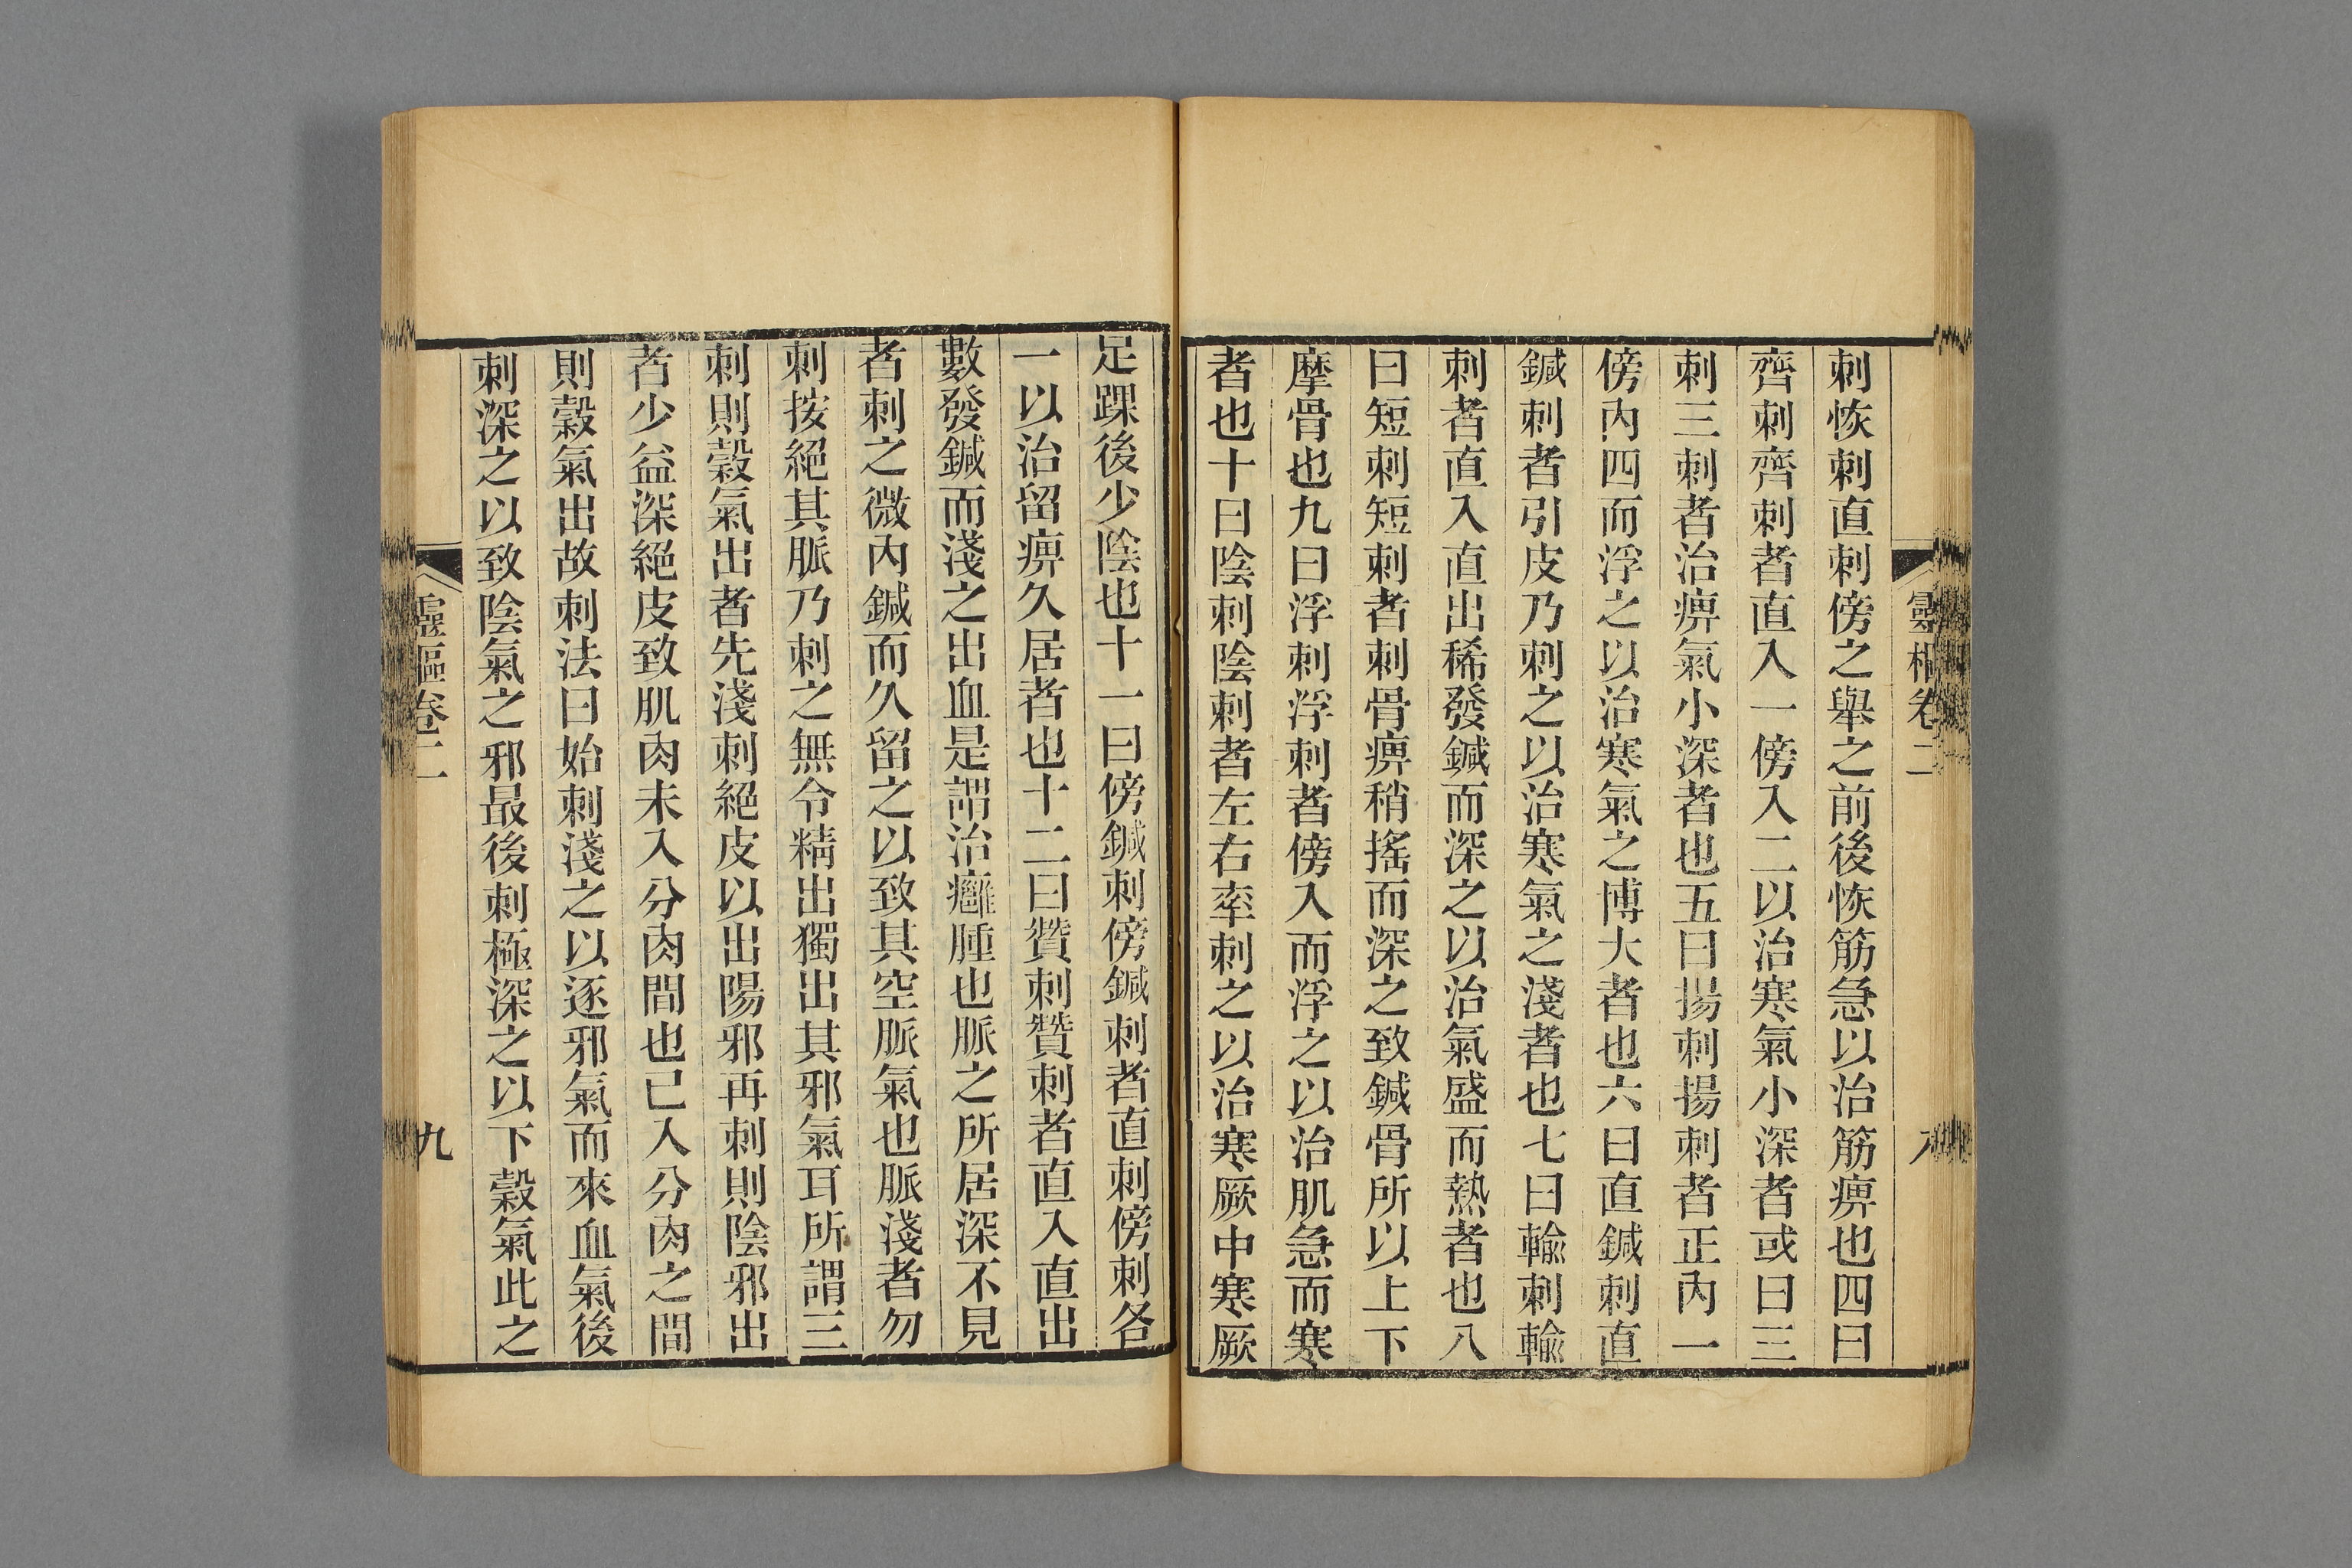 靈樞卷二
八
刺恢刺直刺傍之舉之前後恢筋急以治筋痹也四曰
齊刺齊刺者直入一傍入二以治寒氣小深者或曰三
刺三刺者治痹氣小深者也五曰揚刺揚刺者正內一
傍內四而浮之以治寒氣之博大者也六曰直鍼刺直
鍼刺者引皮乃刺之以治寒氣之淺者也七曰輸刺輸
刺者直入直出稀發鍼而深之以治氣盛而熱者也八
曰短刺短刺者刺骨痹稍搖而深之致鍼骨所以上下
摩骨也九曰浮刺浮刺者傍入而浮之以治肌急而寒
者也十曰陰刺陰刺者左右率刺之以治寒厥中寒厥
足踝後少陰也十一曰傍鍼刺傍鍼刺者直刺傍刺各
一以治留痹久居者也十二曰贊刺贊刺者直入直出
數發鍼而淺之出血是謂治癰腫也脈之所居深不見
者刺之微內鍼而久留之以致其空脈氣也脈淺者勿
刺按絕其脈乃刺之無令精出獨出其邪氣耳所謂三
刺則榖氣出者先淺刺絕皮以出陽邪再刺則陰邪出
者少益深絕皮致肌肉未入分肉間也已入分肉之間
則榖氣出故刺法曰始刺淺之以逐邪氣而來血氣後
刺深之以致陰氣之邪最後刺極深之以下榖氣此之
靈樞卷二
九